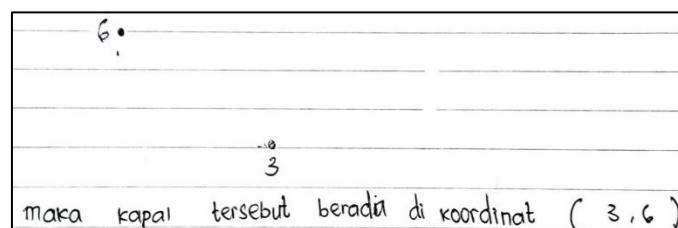 6
3
maka kapal tersebut beradia di koordinat ( 3,6 )